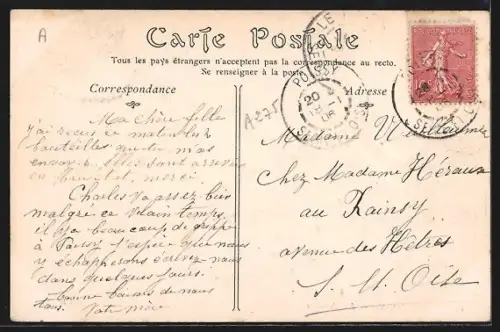 A
Carte Postale
Tous les pays étrangers n'acceptent pas la correspondance au recto.
Se renseigner à la poste
Correspondance
Adresse
A275
POISSY
20
18-1
08
Ma chère fille
j'ai reçu ce matin les
bouteilles que tu m'as
envoyé elles sont arrivées
en bon état, merci.
Charles va assez bien
malgré ce vilain temps.
il y a beaucoup de grippe
à Poissy j'espère que nous
y échapperons écrivez nous
dans quelques jours.
bonne baisers de nous
tous. Votre mère
Madame
Chez Madame Héraux
au Rainsy
avenue des Hêtres
S. et Oise